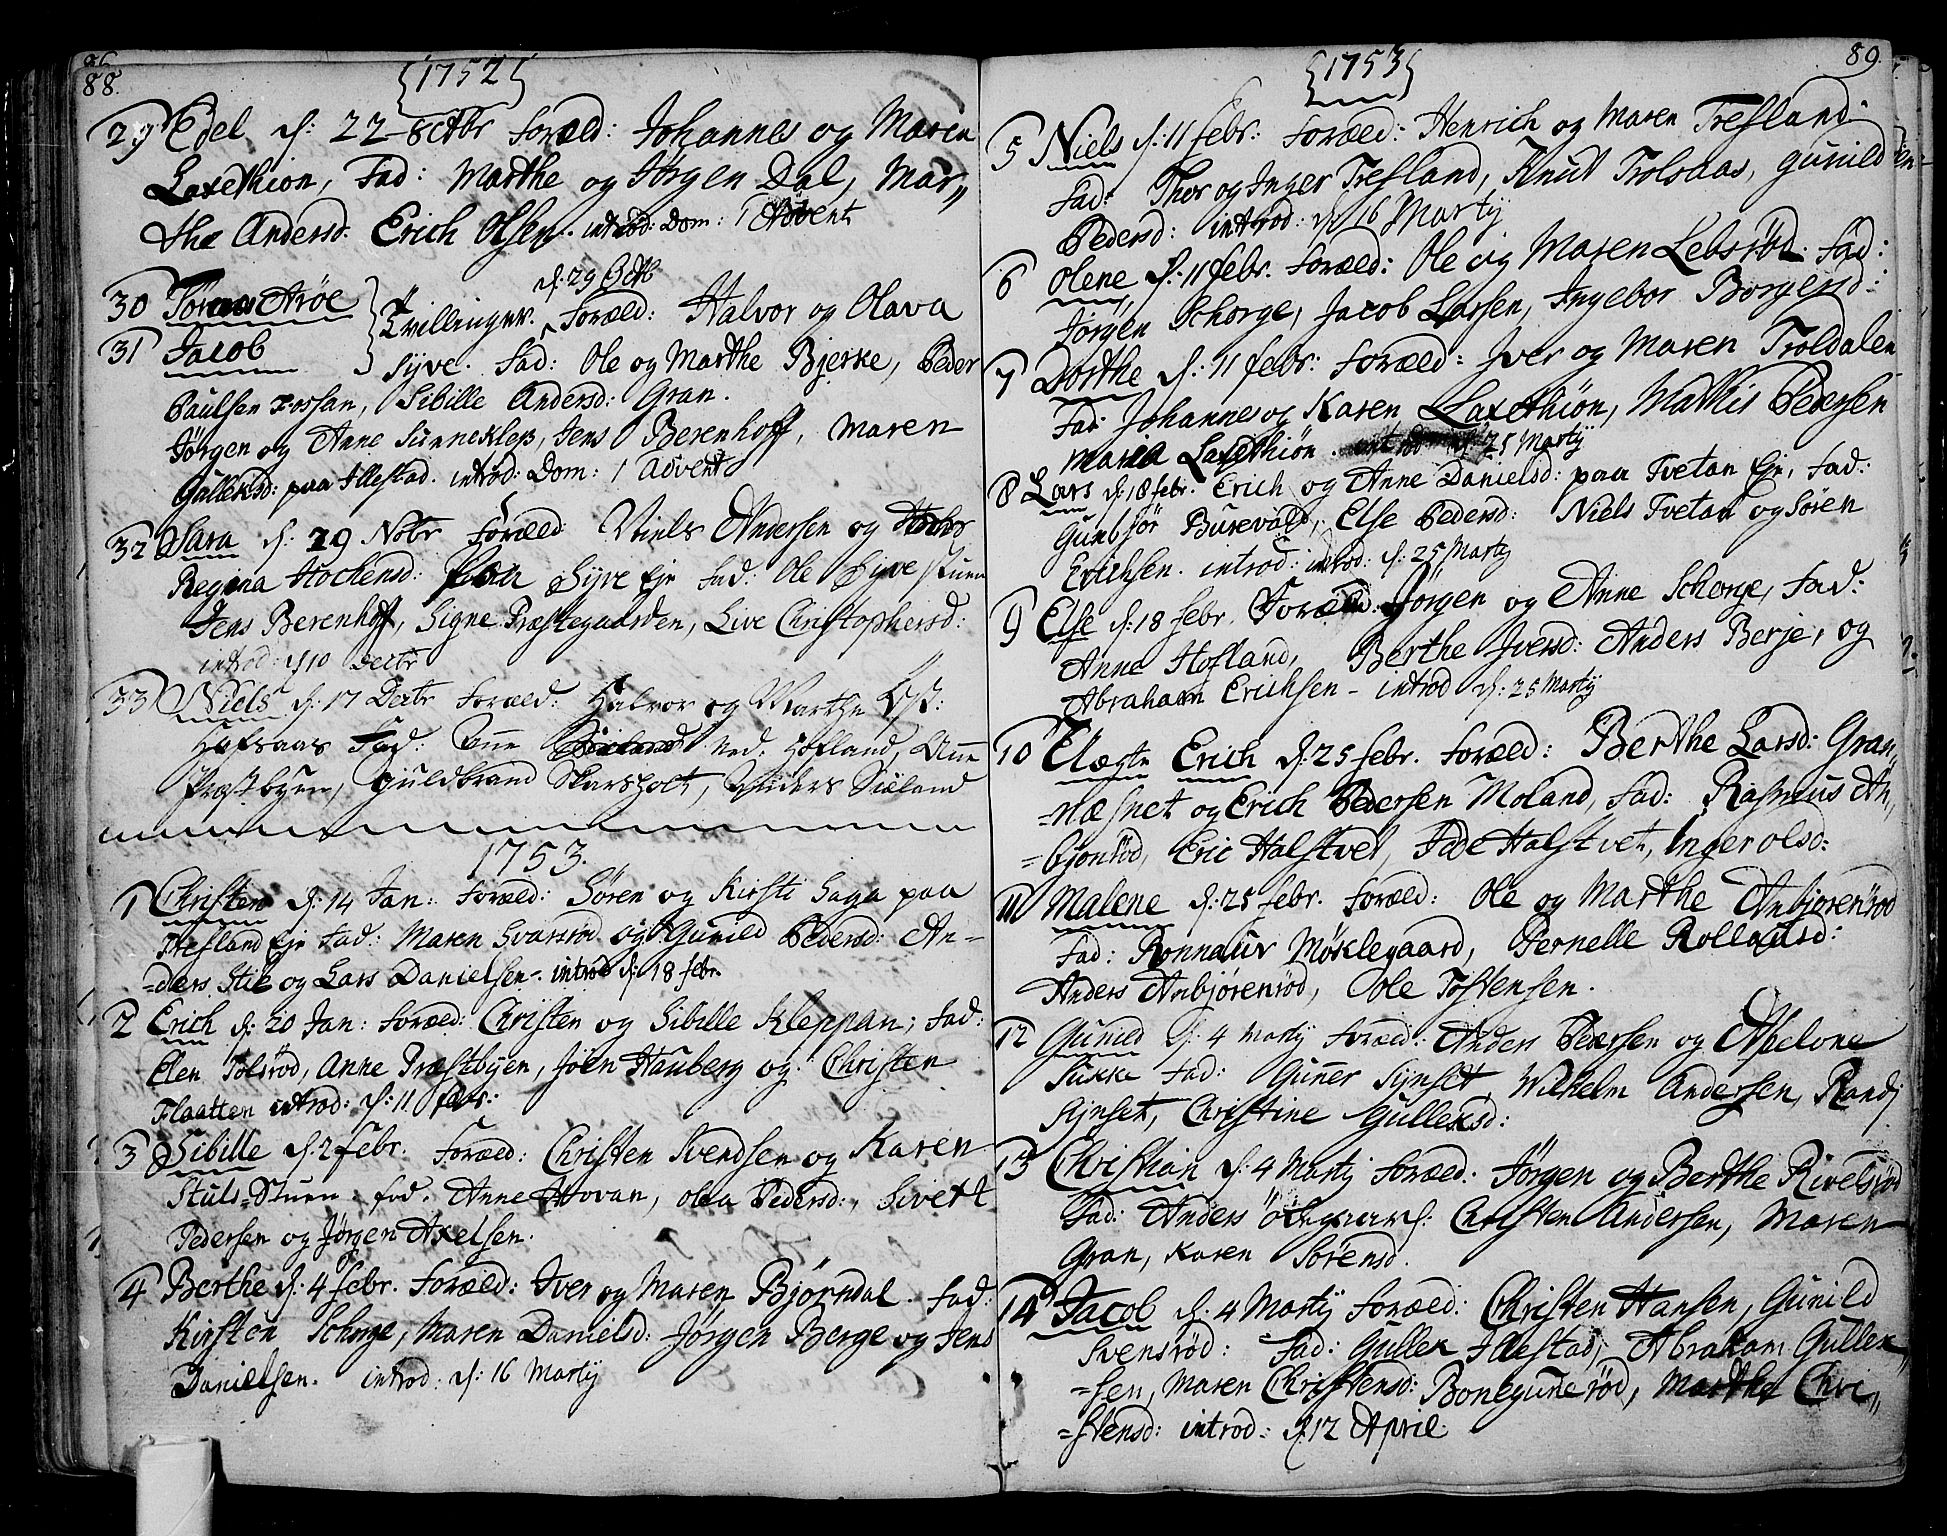 88.
1752
29 Edel d: 22 8ctbr foræld: Johannes og Maren
Laxethion, Fad: Marthe og Jørgen Dal, Mar„
the Andersd. Erich Olsen. introd: Dom: 1 Advent
d: 29 8ctb
30 Aröe
31 Jacob
Tvillinger. Foræld: Halvor og Olava
Syve. Fad: Ole og Marthe Bjerke, Peder
Paulsen Fossan, Sibille Andersd: Gran.
Jørgen og Anne Sunneklef, Jens Berenhoff, Maren
Gulleksd: paa Illestad. introd: Dom: 1 Advent
32 Sara d: 29 Nobr Foræld Niels Andersen og
Regina Hochensd: Syve Eje Fad: Ole Syvestuen
Jens Berenhoff, Signe Præstegaarden, Live Christophersd:
introd: d 10 Decbr
33 Niels d: 17 Decbr Foræld: Halvor og Marthe
Hofsaas Fad: ned. Hofland, Anne
Præstbyen, Guldbrand Skarsholt, Anders Siøland
1753.
1 Christen d: 14 Jan: Foræld: Søren og Kirsti Saga paa
Tresland Eje Fad: Maren Svarsrød og Gunild Pedersd: An-
=ders Stie og Lars Danielsen. introd d: 18 febr.
2 Erich d: 20 Jan: foræld: Christen og Sibille Kleppan; Fad:
Elen Tolsrød, Anne Præstbyen, Joen Hauberg og Christen
Flaatten introd: d: 11 febr:
3 Sibille d: 2 febr. Foræld: Christen Svendsen og Karen
Stuls=Stuen. fad. Anne Hovan, Olea Pedersd:, Sivert
Pedersen og Jørgen Axelsen.
4 Berthe d: 4 febr. Foræld: Iver og Maren Bjørndal. Fad:
Kirsten Schorge, Maren Danielsd: Jørgen Berge og Jens
Danielsen. introd: d: 16 Martij
89.
1753
5 Niels d: 11 febr: Foræld: Henrich og Maren Tresland.
Fad: Thor og Inger Tresland, Knut Trolsaas, Gunild
Pedersd: introd: d: 16 Martij
6 Olene d: 11 febr. Foræld: Ole og Maren Lebsrød. Fad:
Jørgen Schorge, Jacob Larsen, Ingebor Borgersd:
7 Dorthe d: 11 febr: Foræld: Iver og Maren Troldalen
Fad: Johannes og Karen Laxethiøn, Mathis Pedersen
Maria Laxethiøn. introd d: 25 Martij
8 Lars d: 18 febr. Erich og Anne Danielsd: paa Tvetan Eje, Fad:
Gunbjør Burevald, Else Pedersd: Niels Tvetan og Søren
Erichsen. introd: introd: d: 25 Martij
9 Else d: 18 febr. Foræld: Jørgen og Anne Schorge, Fad:
Anne Hofland, Berthe Iversd: Anders Berje, og
Abraham Erichsen - introd d: 25 Martij
10 Uægte Erich d: 25 febr. Foræld: Berthe Larsd: Gran„
=næsnet og Erich Pedersen Moland, Fad: Rasmus An„
=bjonrød, Eric Halstvet, Halstvet, Inger Olsd:
11 Malene d: 25 febr. Foræld: Ole og Marthe Anbjørenrød
Fad: Ronnauv Møklegaard, Pernelle Rollaufsd:
Anders Anbjørenrød, Ole Tostensen.
12 Gunild d: 4 Martij Foræld: Anders Pedersen og Apelone
Sukke Fad: Guner Synset, Wilhelm Andersen, Randj
Synset, Christine Gulleksd:
13 Christian d: 4 Martij Foræld: Jørgen og Berthe Rivelsrød
Fad: Anders Ødegaard: Christen Andersen, Maren
Gran, Karen Sørensd.
14 Jacob d: 4 Martij Foræld: Christen Hansen, Gunild
Svensrød: Fad: Gullek Illestad, Abraham Gullek„
=sen, Maren Christensd: Bonegunerød, Marthe Chri„
=stensd: introd: d: 12 April.